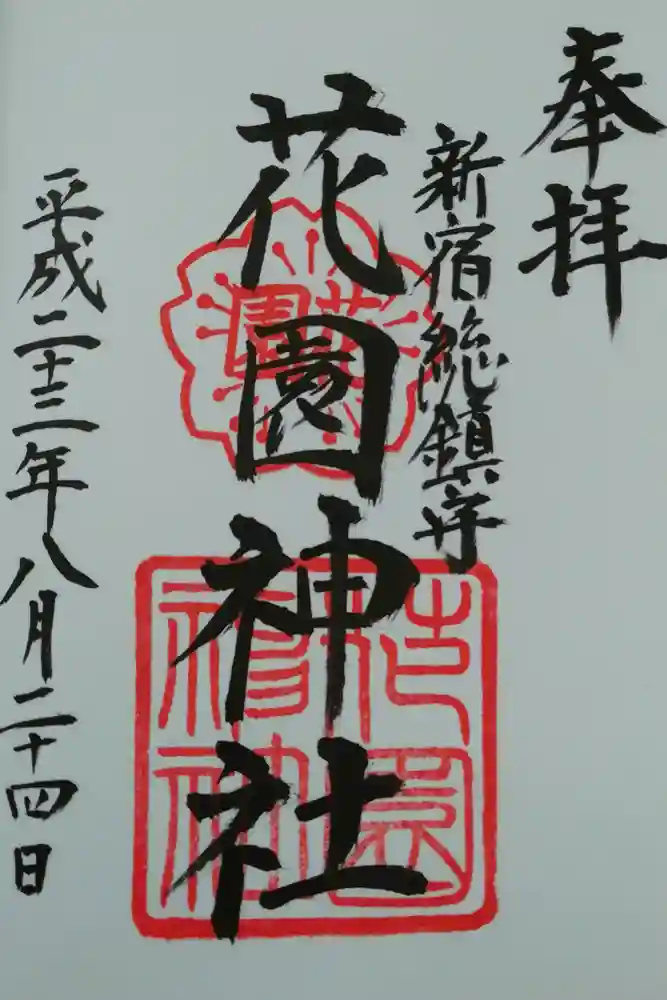 奉拝
新宿総鎮守
花園神社
花園
平成二十三年八月二十四日